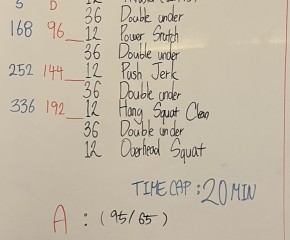 36 Double under
168 96 12 Power Snatch
36 Double under
252 144 12 Push Jerk
36 Double under
336 192 12 Hang Squat Clean
36 Double under
12 Overhead Squat
TIME CAP : 20 MIN
A : (95/65)